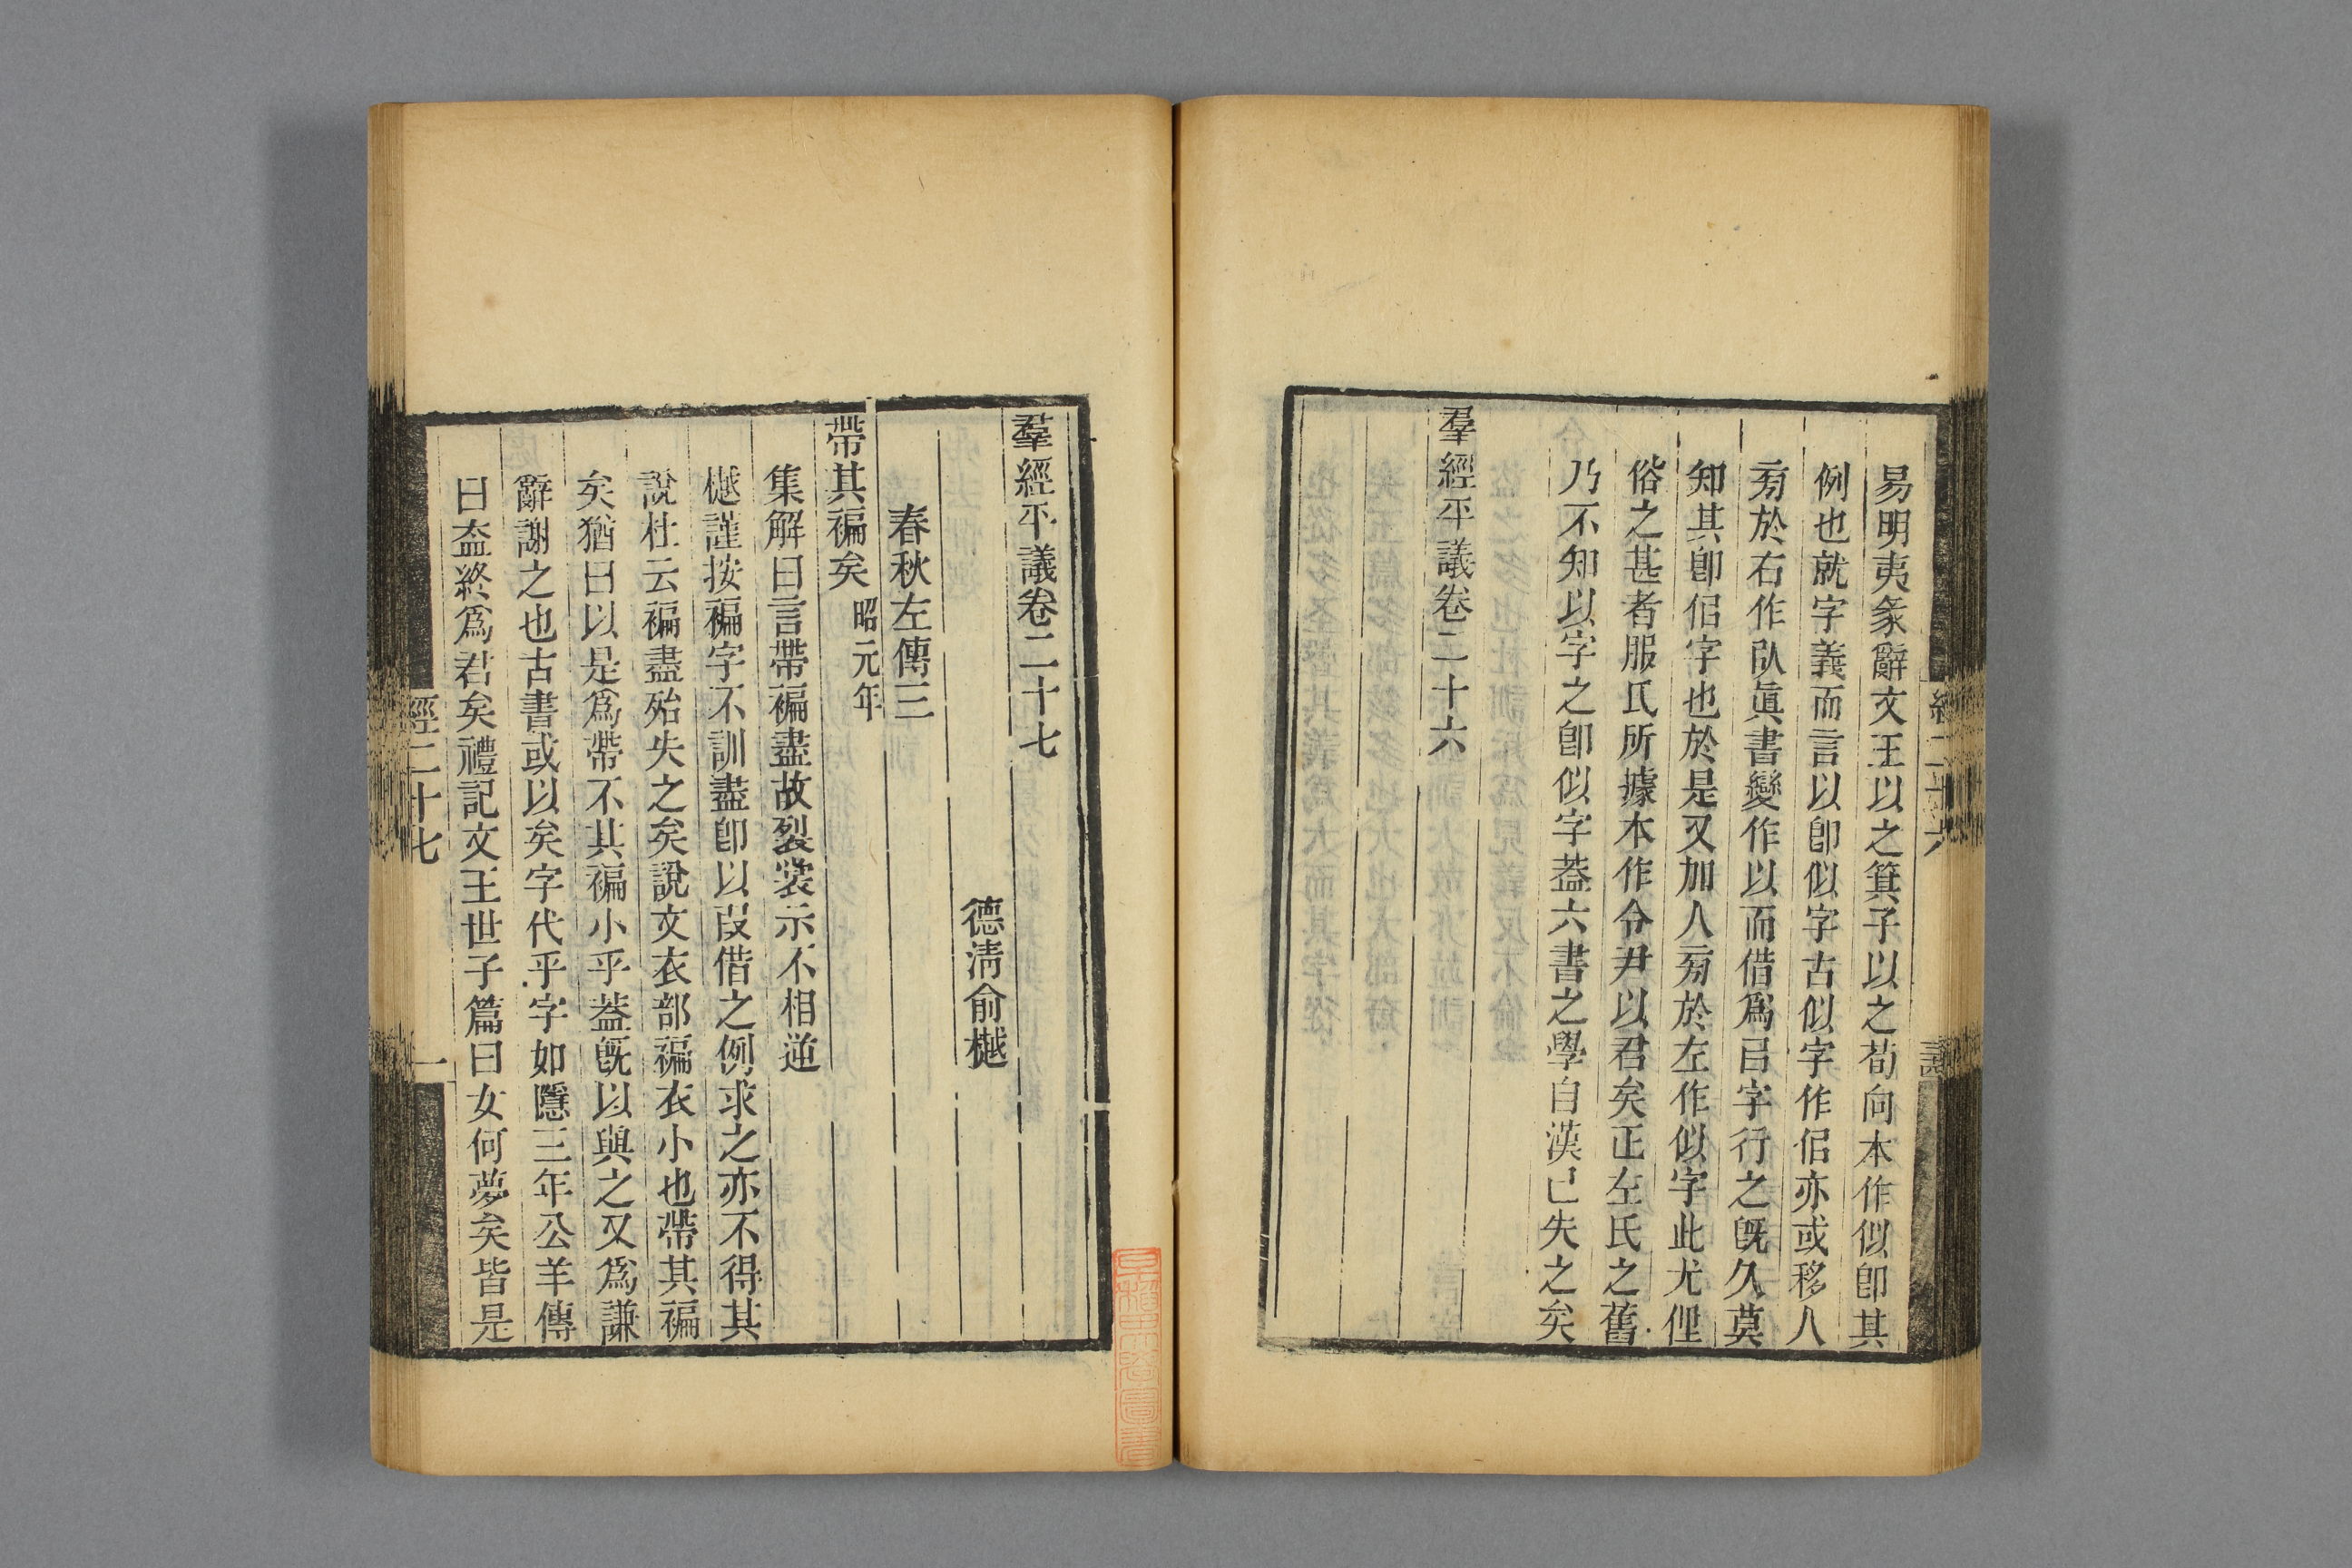 易明夷彖辭文王以之箕子以之荀向本作似卽其
例也就字義而言以卽似字古似字作佀亦或移人
㫄於右作㕥眞書變作以而借爲㠯字行之旣久莫
知其卽佀字也於是又加人㫄於左作似字此尤俚
俗之甚者服氏所據本作令尹以君矣正左氏之舊
乃不知以字之卽似字葢六書之學自漢已失之矣
羣經平議卷二十六
經二十六
羣經平議卷二十七
德淸俞樾
春秋左傳三
帶其褊矣 昭元年
集解曰言帶褊盡故裂裳示不相逆
樾謹按褊字不訓盡卽以叚借之例求之亦不得其
說杜云褊盡殆失之矣說文衣部褊衣小也帶其褊
矣猶曰以是爲帶不其褊小乎葢旣以與之又爲謙
辭謝之也古書或以矣字代乎字如隱三年公羊傳
曰盍終爲君矣禮記文王世子篇曰女何夢矣皆是
經二十七
一